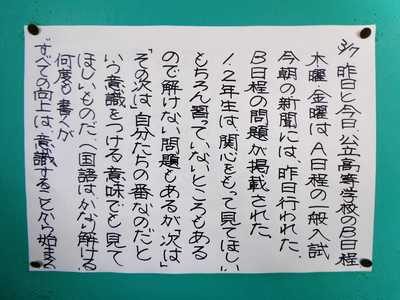 3/7 昨日と今日、公立高等学校のB日程
木曜・金曜はA日程の一般入試
今朝の新聞には、昨日行われた、
B日程の問題が掲載された。
1、2年生は、関心をもって見てほしい
もちろん習っていないところもある
ので解けない問題もあるが、「次は」
「その次は」自分たちの番なのだと
いう意識をつける意味でも見て
ほしいものだ(国語はかなり解ける)
何度も書くが
「すべての向上は、意識することから始まる